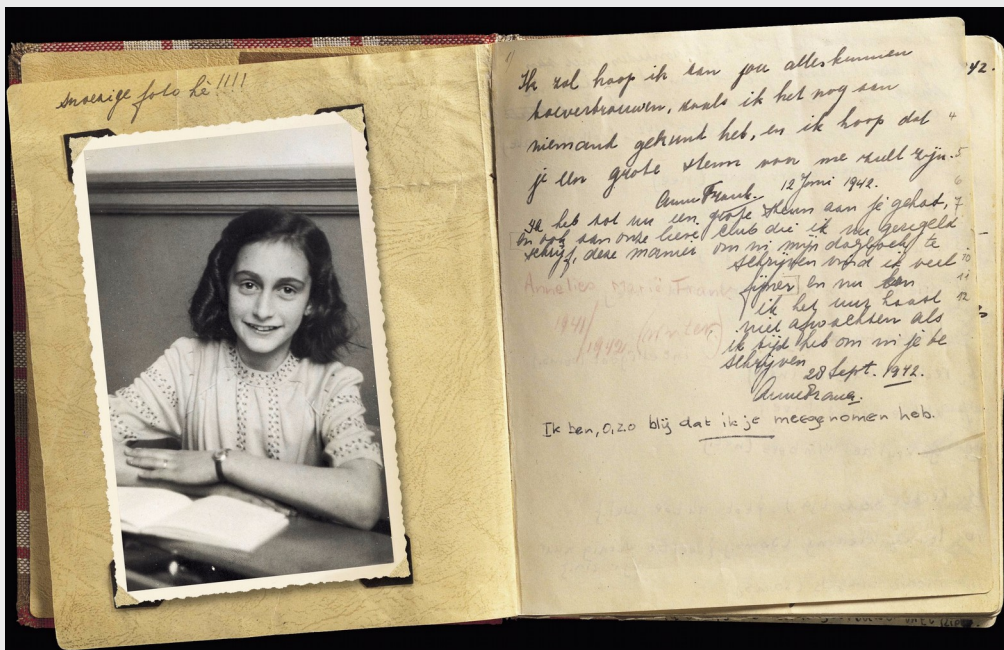 snoezige foto hè!!!!
Ik zal hoop ik aan jou alles kunnen
toevertrouwen, zoals ik het nog aan
niemand gekund heb, en ik hoop dat
je een grote steun voor me zult zijn.
Anne Frank. 12 Juni 1942.
Ik heb tot nu een grote steun aan je gehad,
en ook aan onze lieve club die ik nu geregeld
schrijf, deze manier om in mijn dagboek te
schrijven vind ik veel
fijner en nu kan
ik het uur haast
niet afwachten als
ik tijd heb om in je te
schrijven
28 Sept. 1942.
Anne Frank.
Annelies Marie Frank
1941/
1942
Ik ben, O, zo blij dat ik je meegenomen heb.
42.
4
5
6
7
10
11
12